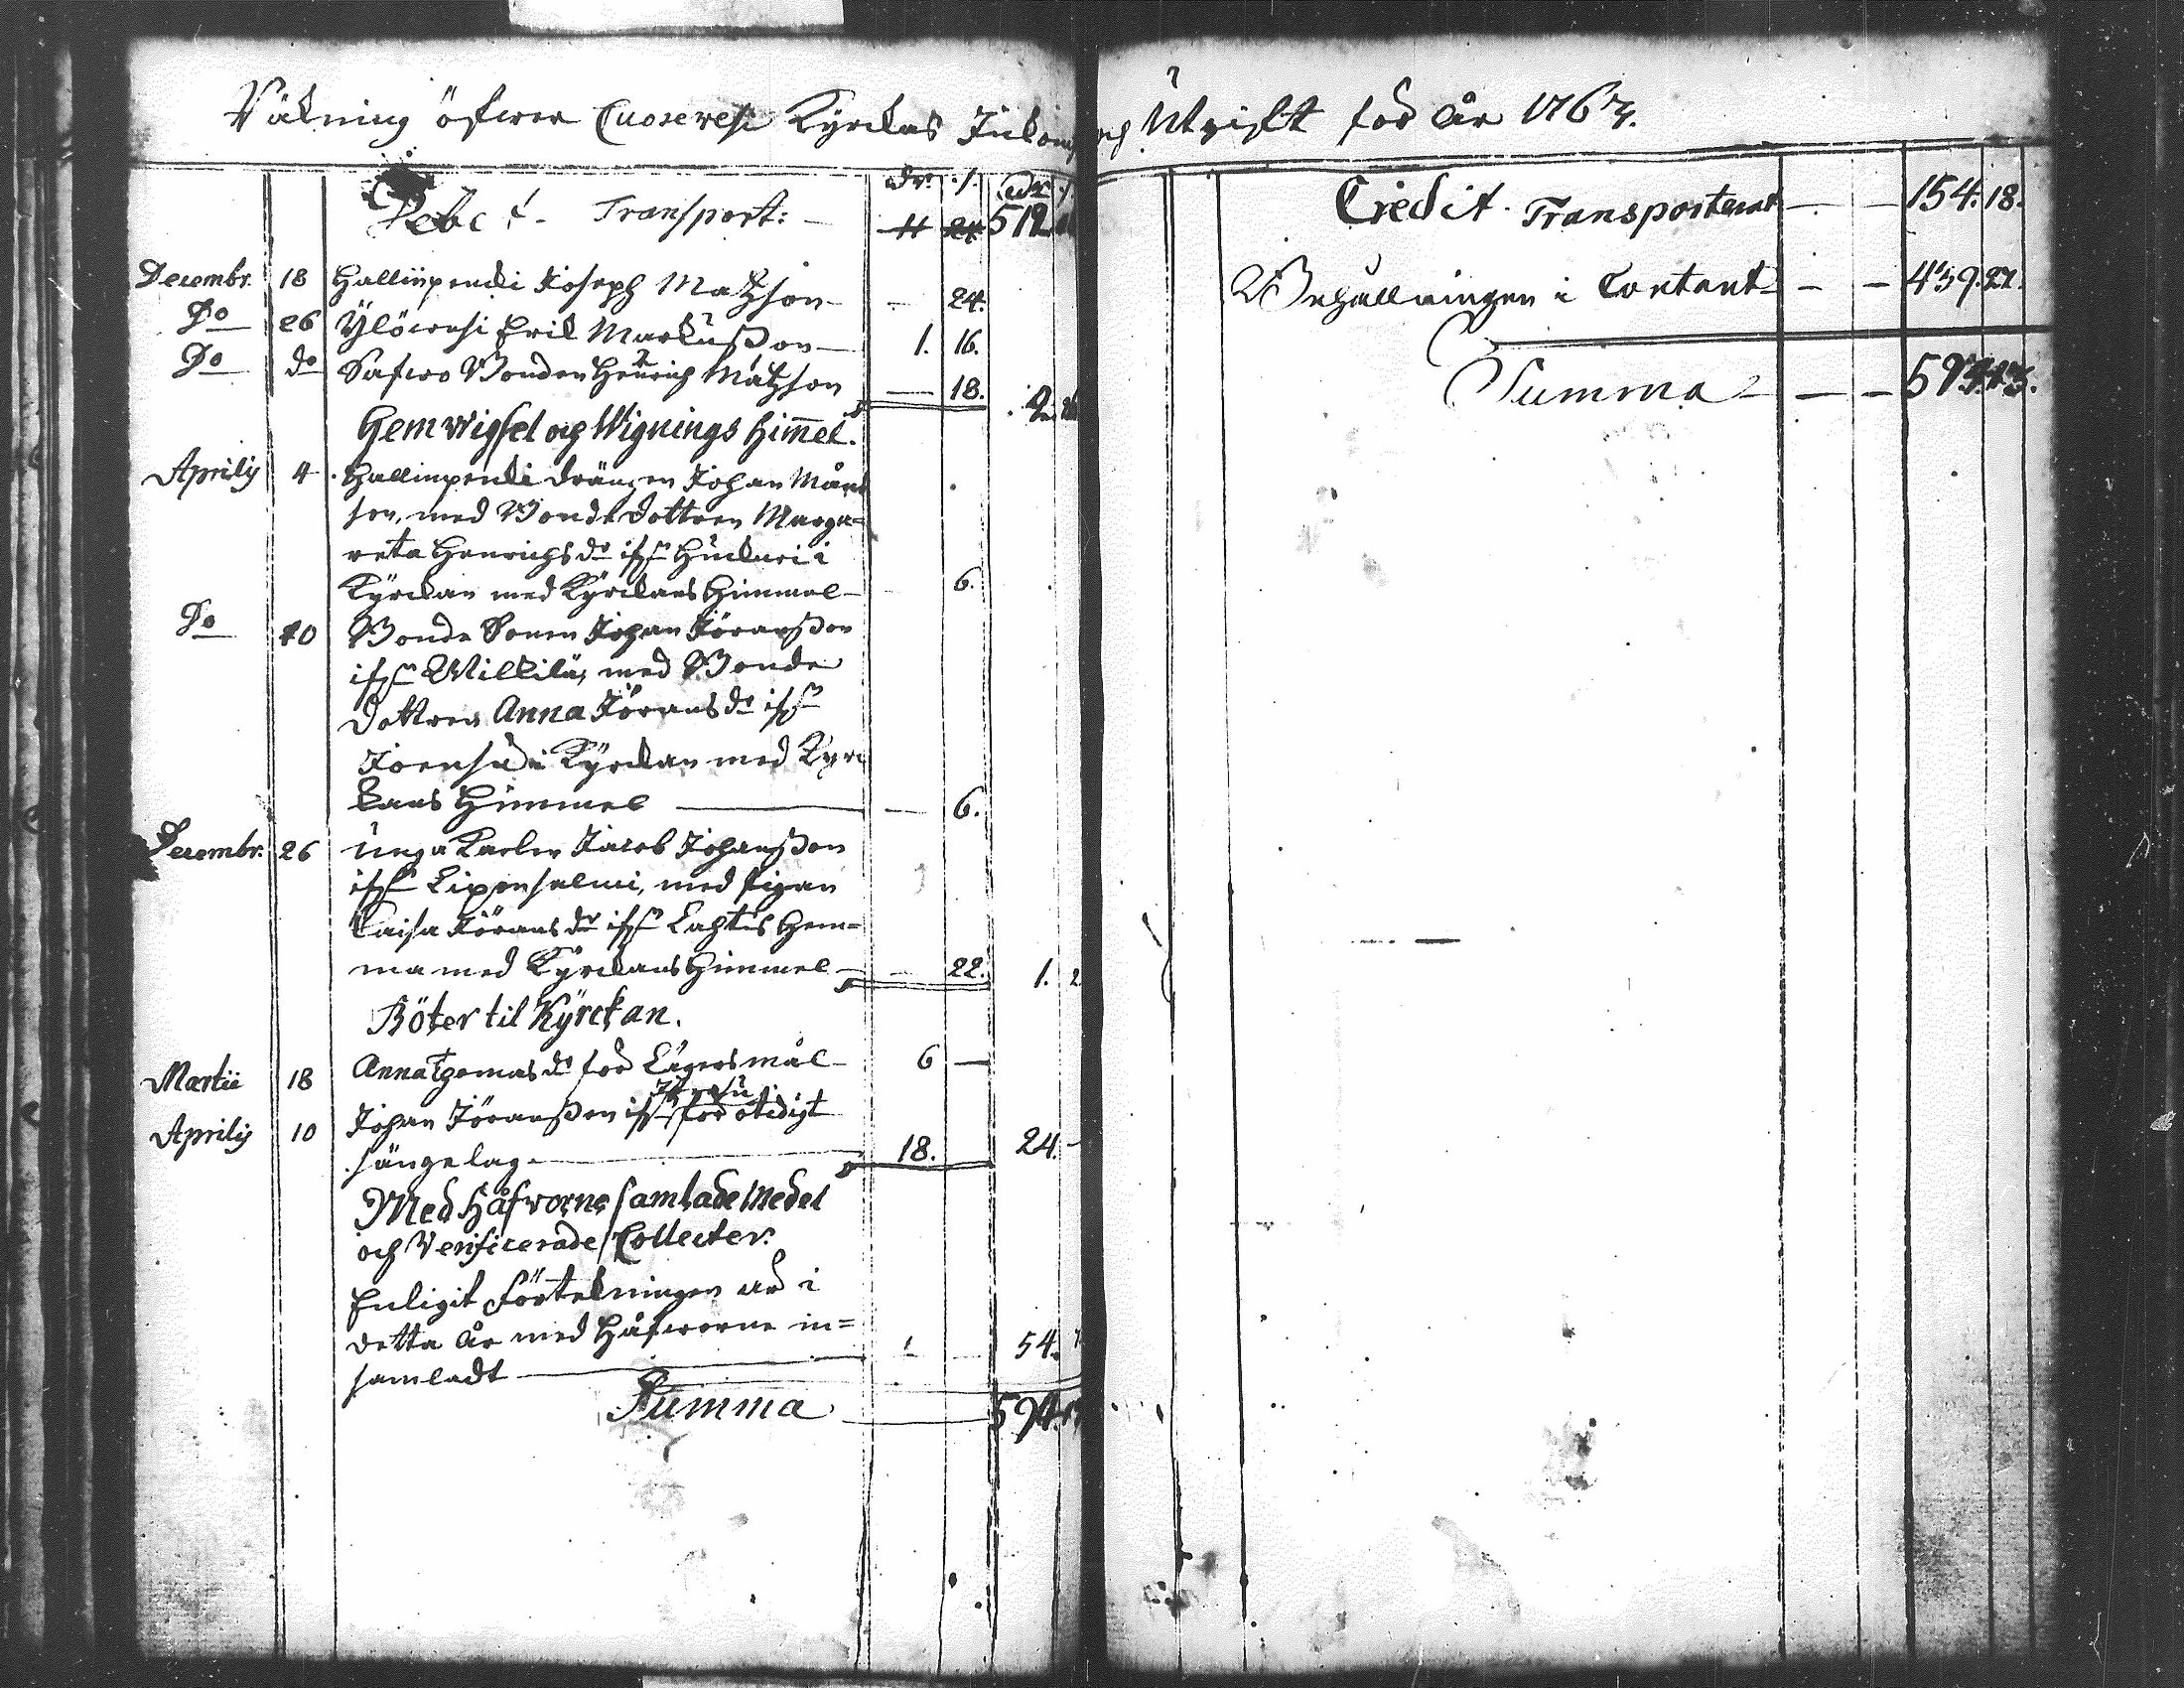 Räkning öfwer Cuorewesi Kyrckas Inkomst och Utgift för år 1767.
dr. /. dr /.
Debet. Transport: — 11 24 512
Decembr. 18 Hallinpendi Joseph Matzson — 24.
Do 26 Ylöwesi Erik Markusson — 1. 16.
Do do Safwo Bonden Henrich Matzson — 18. 2.
Hemwigsel och Wignings Himel.
Aprilis 4. Hallinpendi drängen Johan Måns
son, med Bonde dottren Marga=
reta Henrichs dr ifrn Hucluri i
Kyrckan med Kyrckans Himmel — 6.
Do 10 Bonde Sonen Johan Jöransson
ifrn Willilä, med Bonde
dottren Anna Jörans dr ifrn
i Kyrckan med Kyrc
kans Himmel — 6.
Decembr. 26 Unga Karlen Jacob Johansson
ifrn Lipensalmi, med pigan
Caisa Jörans dr ifrn Lahtis Hem=
ma med Kyrckans Himmel — 22. 1. 2
Böter til Kyrckan.
Martii 18 Anna Thomas dr för Lägersmål 6 —
Aprilis 10 Johan Jöransson ifrn för otidigt
sängelag — 18. 24. —
Med Håfworne samlade Medel
och Verificerade Collecter.
Enligit Förtekningen är i
detta år med Håfworne in=
samladt — 54.
Summa — 594.
Credit. Transporterat — — 154. 18.
Behållningen i Contant — — 439. 27.
Summa — — 594. 13.